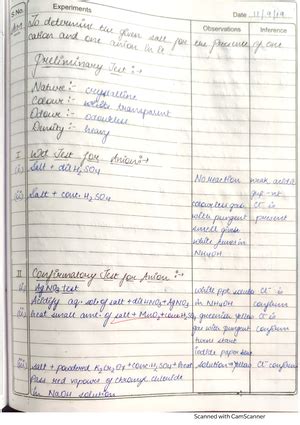 S.No. Experiments Date 11/9/19
Observations Inference
Aim To determine the given salt for the presence of one
cation and one anion in it
Preliminary Test :-
Nature :- crystalline
Colour :- white transparent
Odour :- odourless
Density :- heavy
I Wet Test for Anion :-
(i) Salt + dil H2SO4 No reaction weak acid
absent
(ii) Salt + conc. H2SO4 colourless gas Cl-
with pungent present
smell gives
white fumes in
NH4OH
II Confirmatory Test for Anion :-
(i) AgNO3 test white ppt soluble Cl-
Acidify aq. sol of salt + dil HNO3 + AgNO3 in NH4OH confirm
(ii) Heat small amt. of salt + MnO2 + conc. H2SO4 greenish yellow Cl-
gas with pungent confirm
turns starch
iodide paper blue
(iii) salt + powdered K2Cr2O7 + conc. H2SO4 + Heat solution yellow Cl-
Pass red vapours of chromyl chloride confirm
in NaOH solution
Scanned with CamScanner